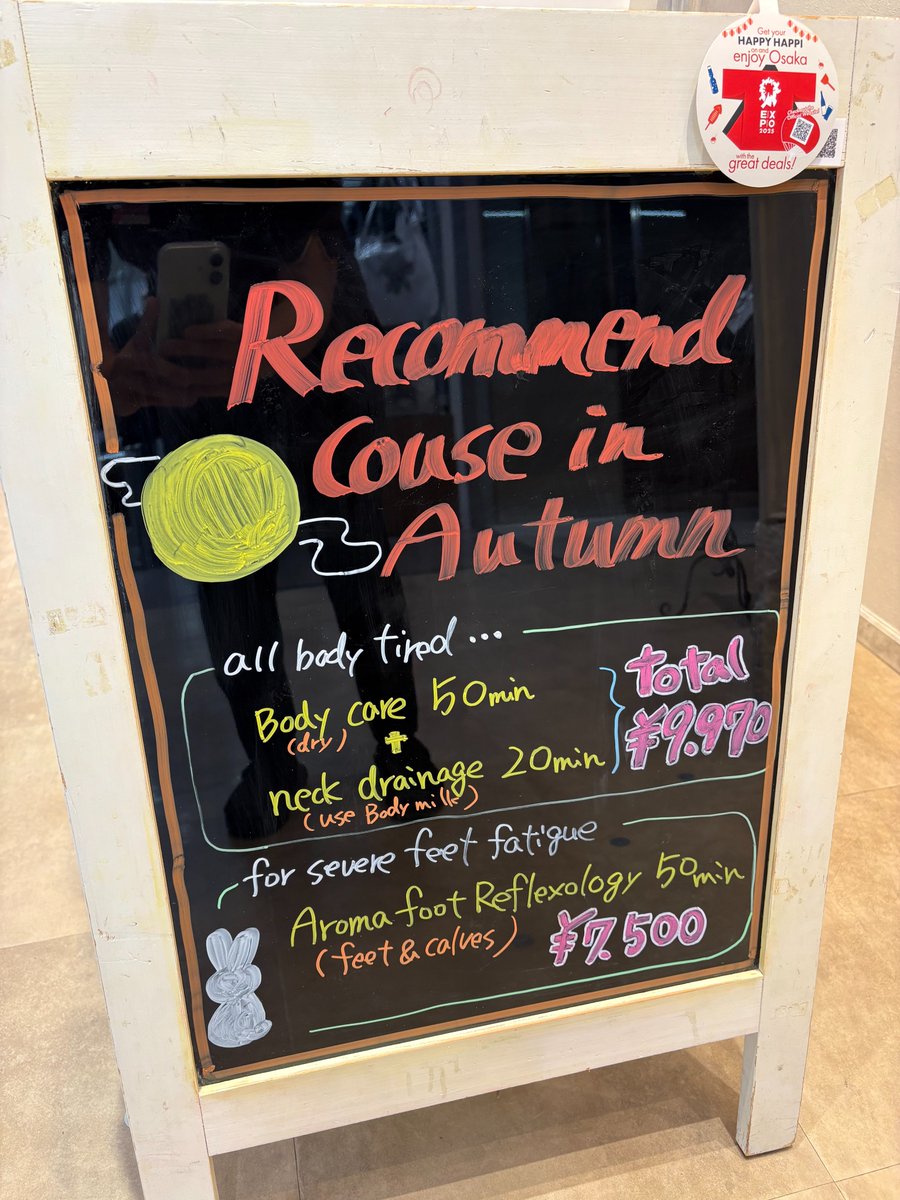 Get your
HAPPY HAPPI
on and
enjoy Osaka
EXPO
2025
with the
great deals!
Recommend
Couse in
Autumn
all body tired...
Body care 50min
(dry)
+
neck drainage 20min
(use Body milk)
Total
¥9.970
for severe feet fatigue
Aroma foot Reflexology 50min
(feet & calves)
¥7.500